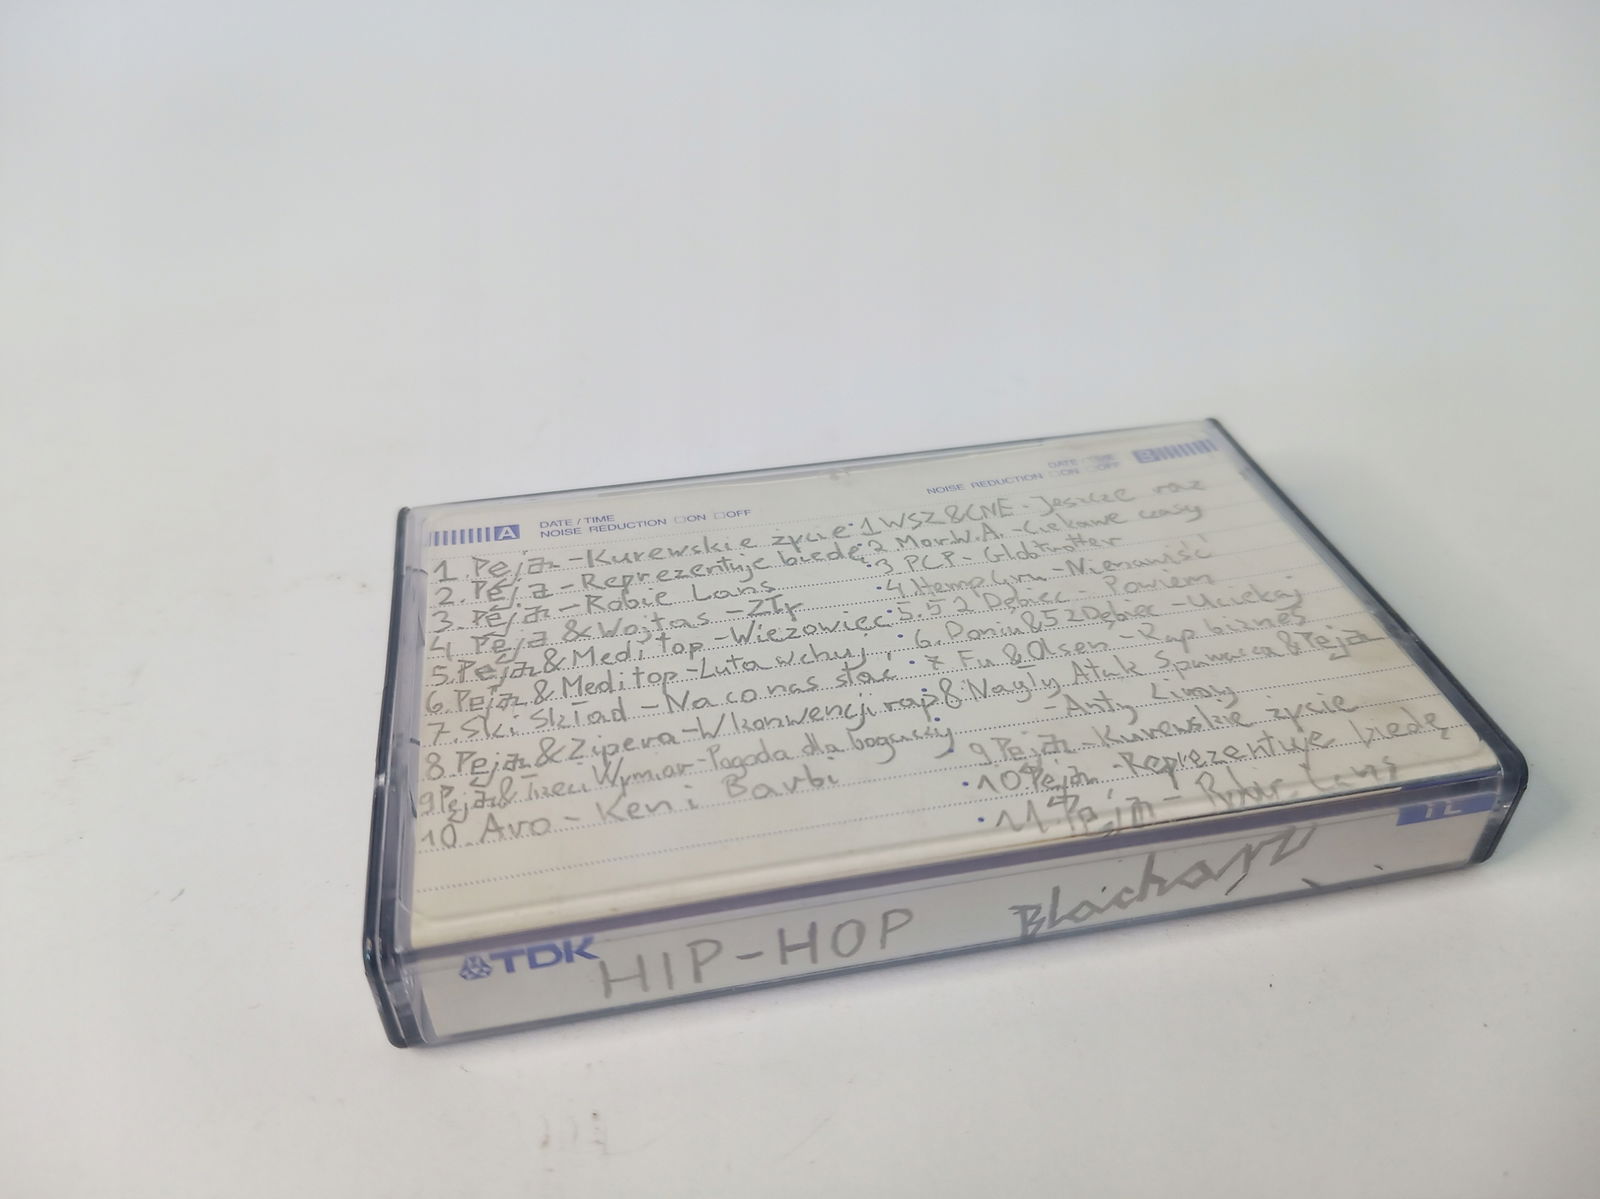 A
DATE / TIME
NOISE REDUCTION □ON □OFF
1. Peja - Kurewskie życie
2. Peja - Reprezentuje biede
3. Peja - Robie Lans
4. Peja & Wojtas - Zły
5. Peja & Meditop - Wieżowiec
6. Peja & Meditop - Luta w chuj
7. Ski Skład - Na co nas stać
8. Peja & Zipera - W konwencji rap
9 Peja & Trzeci Wymiar - Pogoda dla bogaczy
10. Avo - Ken i Barbi
DATE / TIME
B
NOISE REDUCTION □ON □OFF
1 WSZ & CNE - Jeszcze raz
2 Mor.W.A. - Ciekawe czasy
3 PCP - Globtrotter
4 Hemp Gru - Nienawiść
5. 52 Dębiec - Powiem
6. Doniu & 52 Dębiec - Uciekaj
7 Fu & Olsen - Rap biznes
8. Nagły Atak Spawacza & Peja
- Anty Liroy
9 Peja - Kurewskie życie
10 Peja - Reprezentuje biedę
11 Peja - Robie Lans
TDK
HIP-HOP